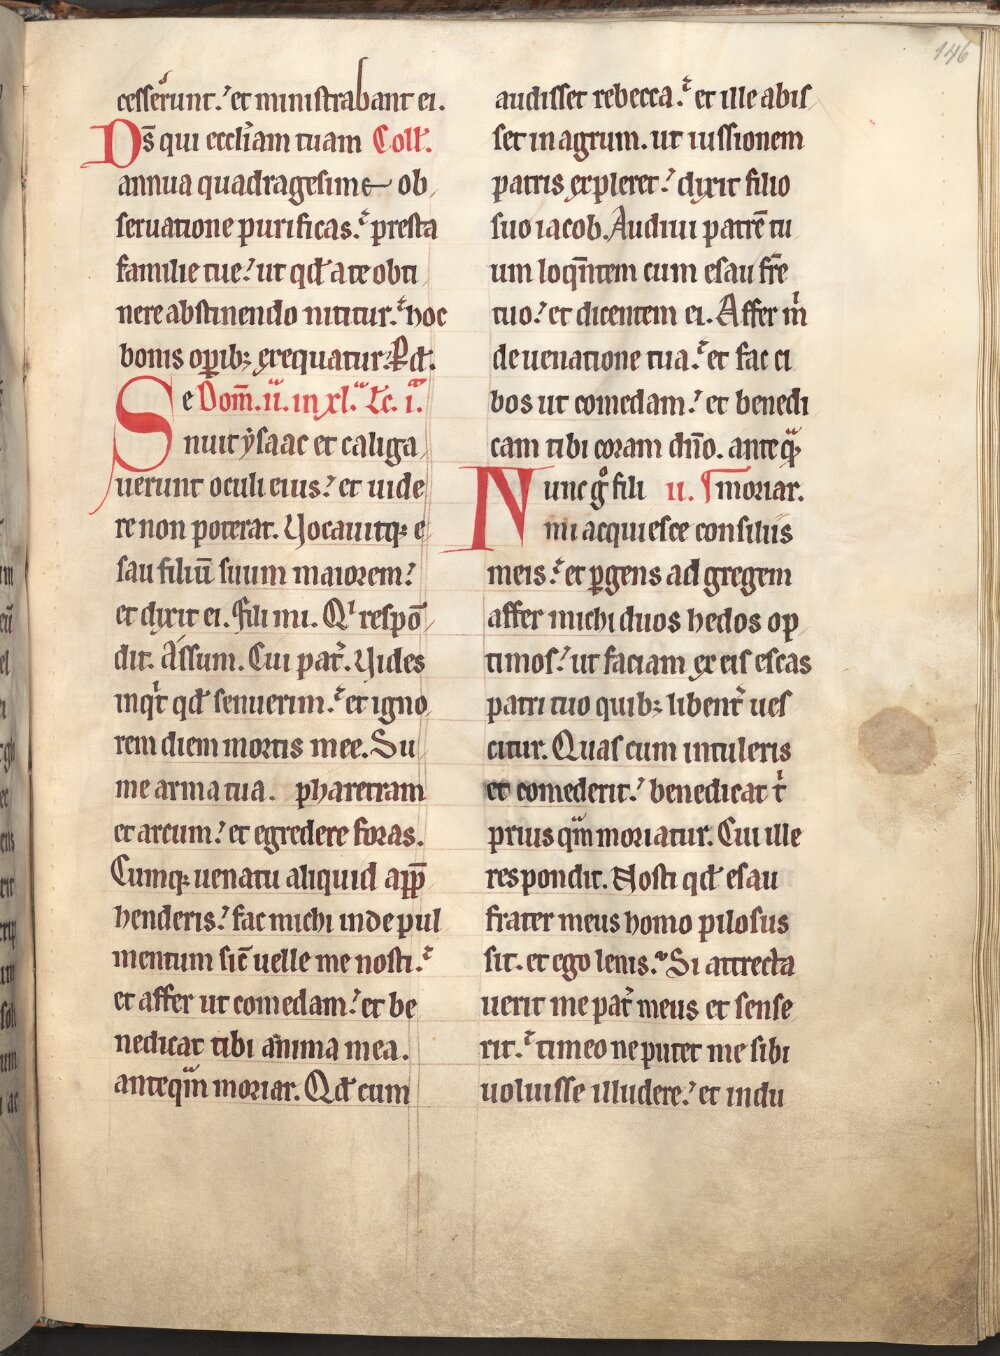 146
cesserunt. et ministrabant ei.
Ds̄ qui eccl̄iam tuam Coll'.
annua quadragesime ob
seruatione purificas. presta
familie tue. ut qđ a te obti
nere abstinendo nititur. hoc
bonis op̄ibꝫ exequatur. P̄ đ.
Se Dom̄. ii. in xl. Lc̄. i.
nuit ysaac et caliga
uerunt oculi eius. et uide
re non poterat. Uocauitqꝫ e
sau filiū suum maiorem.
et dixit ei. Fili mi. Qͥ respō
dit. Assum. Cui pat̄. Uides
inqͥt qđ senuerim. et igno
rem diem mortis mee. Su
me arma tua. pharetram
et arcum. et egredere foras.
Cumqꝫ uenatu aliquid app̄
henderis. fac michi inde pul
mentum sic̄ uelle me nosti.
et affer ut comedam. et be
nedicat tibi anima mea.
anteqᵃm moriar. Qđ cum
audisset rebecca. et ille abis
set in agrum. ut iussionem
patris expleret. dixit filio
suo iacob. Audiui patrē tu
um loqn̄tem cum esau fr̄e
tuo. et dicentem ei. Affer mͥ
de uenatione tua. et fac ci
bos ut comedam. et benedi
cam tibi coram dn̄o. anteqᵃꝫ
Nunc gͦ fili ii. ¶ moriar.
mi acquiesce consiliis
meis. et ꝑgens ad gregem
affer michi duos hedos op
timos. ut faciam ex eis escas
patri tuo quibꝫ libent̄ ues
citur. Quas cum intuleris
et comederit. benedicat tͥ
prius qᵃm moriatur. Cui ille
respondit. Nosti qđ esau
frater meus homo pilosus
sit. et ego lenis. Si attrecta
uerit me pat̄ meus et sense
rit. timeo ne putet me sibi
uoluisse illudere. et indu